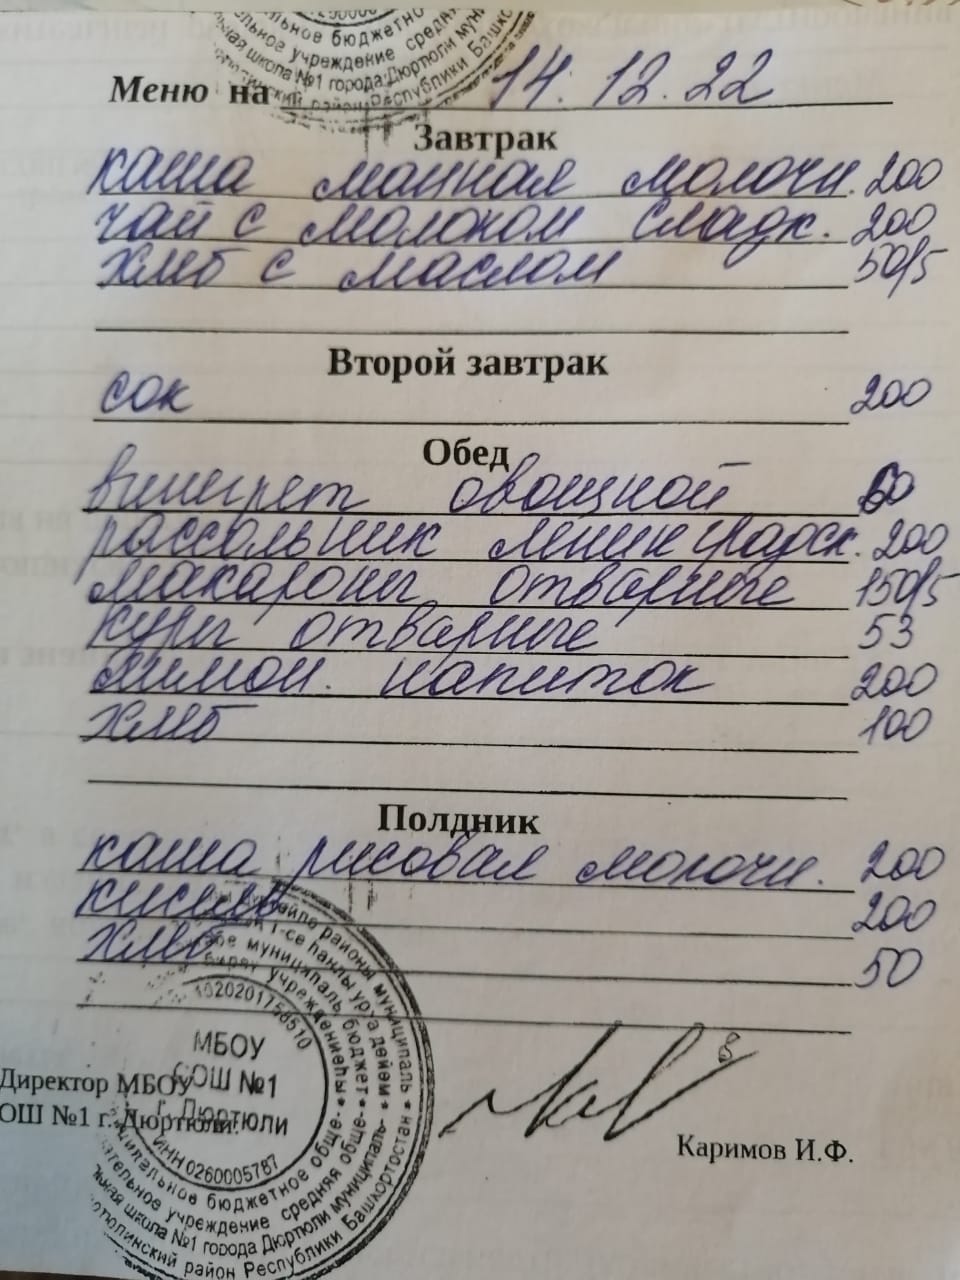 бюджетно
учреждение средн
ьная школа №1 города Дюртюли му
ский район Республики Башко
Меню на 14. 12. 22
Завтрак
каша манная молочн. 200
чай с молоком сладк. 200
хлеб с маслом 50/5
Второй завтрак
сок 200
Обед
винегрет овощной 60
рассольник ленинградск. 200
макароны отварные 150/5
куры отварные 53
лимон. напиток 200
хлеб 100
Полдник
каша рисовая молочн. 200
кисель 200
хлеб 50
МБОУ
СОШ №1
г. Дюртюли
ИНН 0260005787
Директор МБОУ
ОШ №1 г. Дюртюли:
Каримов И.Ф.
районы муниципаль
муниципаль бюджет
учреждениеһы
Башкортостан
ципальное бюджетное обще-
ательное учреждение средняя обще-
ьная школа №1 города Дюртюли муниципаль-
ртюлинский район Республики Башкортостан